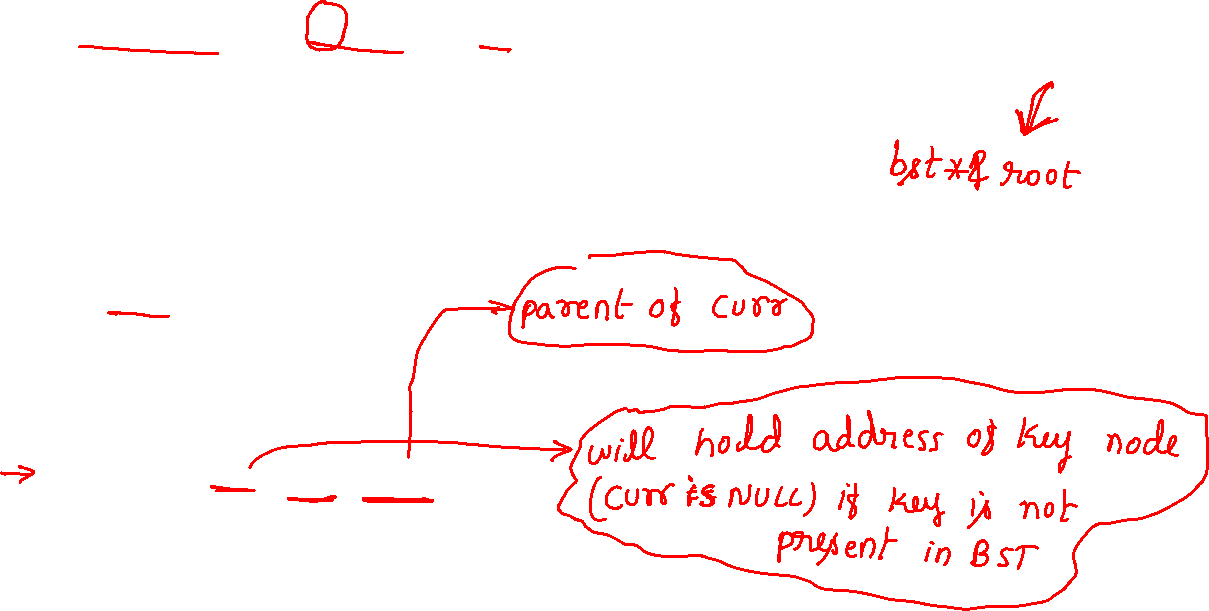 bst *& root
parent of curr
will hold address of key node
(curr is NULL) if key is not
present in BST